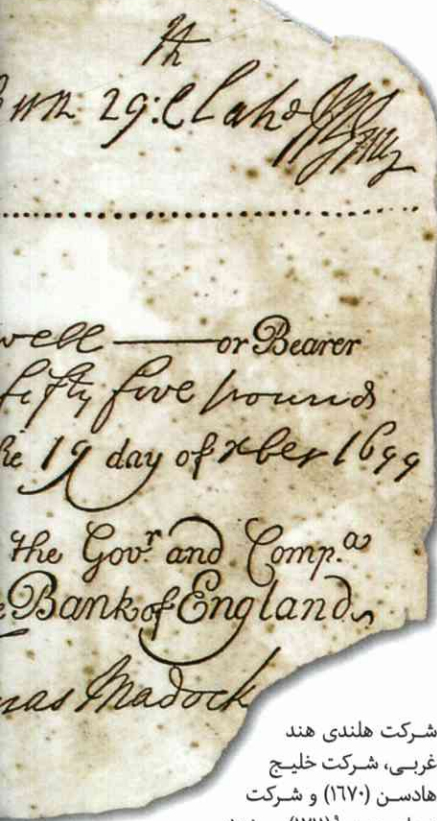 th
29:
well or Bearer
fifty five pounds
he 19 day of xber 1699
the Govr. and Comp.a
e Bank of England
mas Madock
شرکت هلندی هند
غربی، شرکت خلیج
هادسن (۱۶۷۰) و شرکت